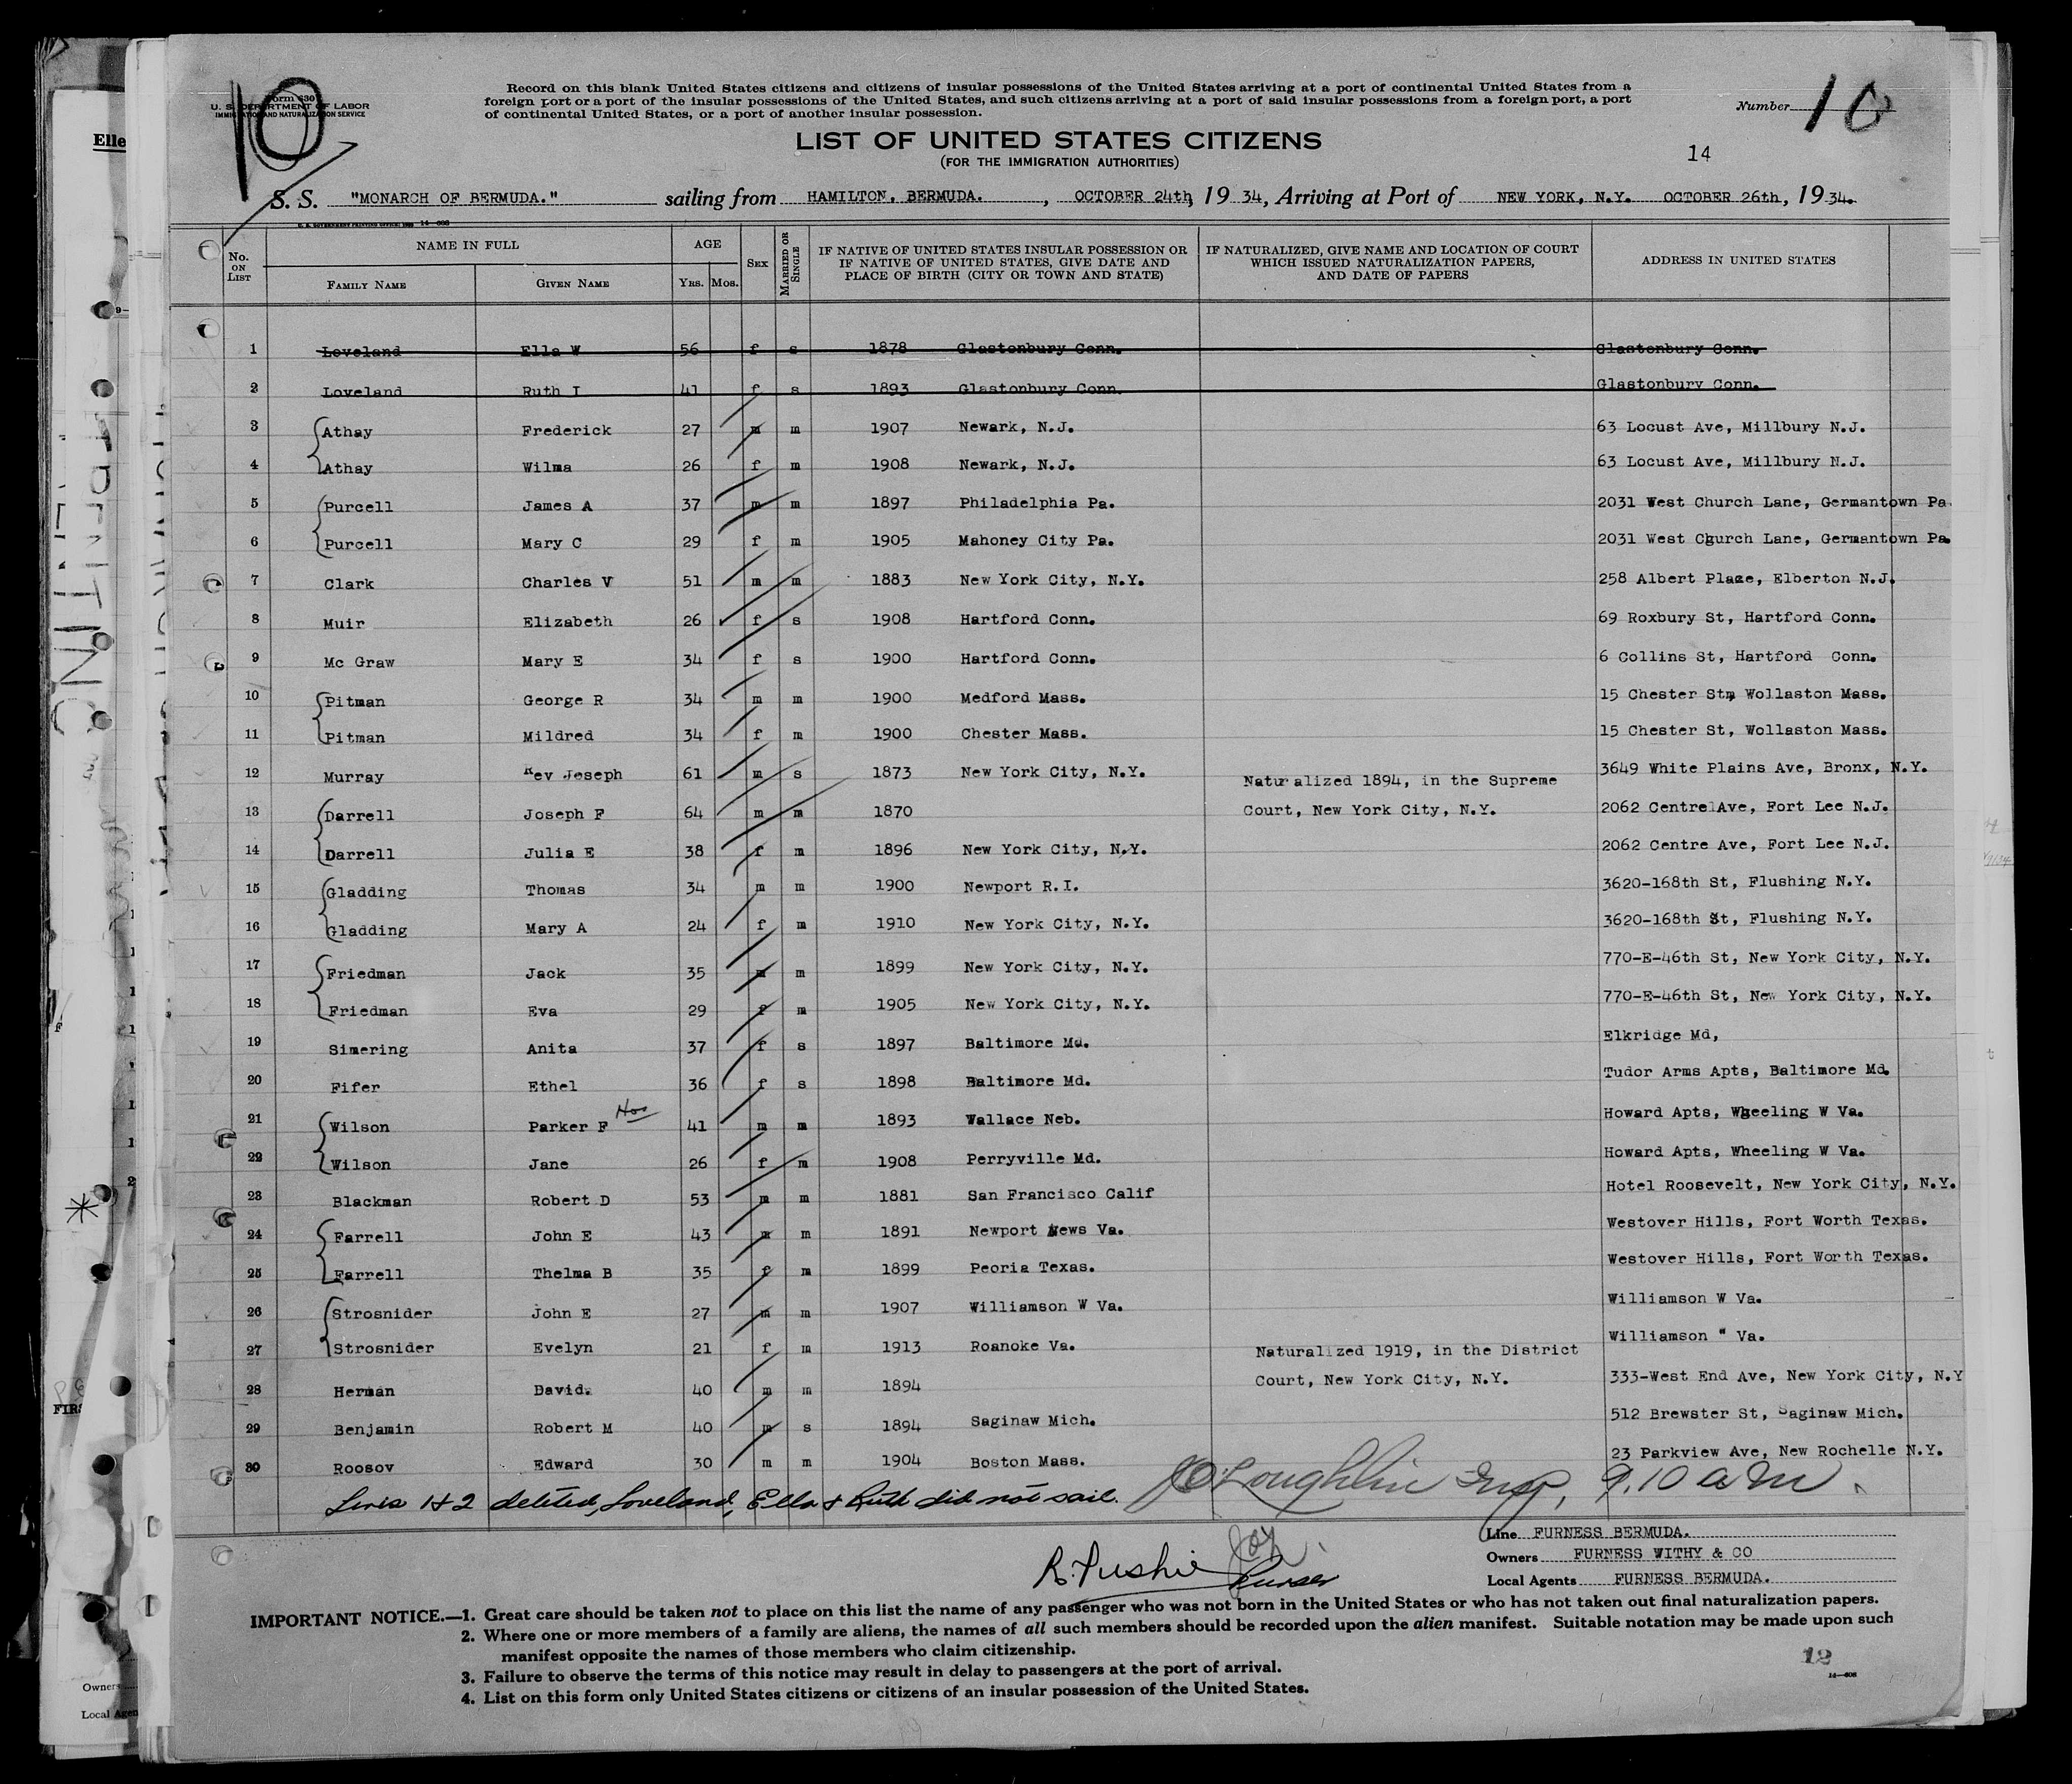 10
Form 630
U. S. DEPARTMENT OF LABOR
IMMIGRATION AND NATURALIZATION SERVICE
Record on this blank United States citizens and citizens of insular possessions of the United States arriving at a port of continental United States from a
foreign port or a port of the insular possessions of the United States, and such citizens arriving at a port of said insular possessions from a foreign port, a port
of continental United States, or a port of another insular possession.
Number 10
LIST OF UNITED STATES CITIZENS
(FOR THE IMMIGRATION AUTHORITIES)
14
S. S. "MONARCH OF BERMUDA." sailing from HAMILTON, BERMUDA. , OCTOBER 24th, 19 34, Arriving at Port of NEW YORK, N.Y. OCTOBER 26th, 19 34.
No. ON LIST NAME IN FULL AGE SEX MARRIED OR SINGLE IF NATIVE OF UNITED STATES INSULAR POSSESSION OR IF NATIVE OF UNITED STATES, GIVE DATE AND PLACE OF BIRTH (CITY OR TOWN AND STATE) IF NATURALIZED, GIVE NAME AND LOCATION OF COURT WHICH ISSUED NATURALIZATION PAPERS, AND DATE OF PAPERS ADDRESS IN UNITED STATES
FAMILY NAME GIVEN NAME YRS. MOS.
1 Loveland Ella W 56 f s 1878 Glastonbury Conn. Glastonbury Conn.
2 Loveland Ruth I 41 f s 1893 Glastonbury Conn. Glastonbury Conn.
3 Athay Frederick 27 m m 1907 Newark, N.J. 63 Locust Ave, Millbury N.J.
4 Athay Wilma 26 f m 1908 Newark, N.J. 63 Locust Ave, Millbury N.J.
5 Purcell James A 37 m m 1897 Philadelphia Pa. 2031 West Church Lane, Germantown Pa.
6 Purcell Mary C 29 f m 1905 Mahoney City Pa. 2031 West Church Lane, Germantown Pa.
7 Clark Charles V 51 m m 1883 New York City, N.Y. 258 Albert Place, Elberton N.J.
8 Muir Elizabeth 26 f s 1908 Hartford Conn. 69 Roxbury St, Hartford Conn.
9 Mc Graw Mary E 34 f s 1900 Hartford Conn. 6 Collins St, Hartford Conn.
10 Pitman George R 34 m m 1900 Medford Mass. 15 Chester St, Wollaston Mass.
11 Pitman Mildred 34 f m 1900 Chester Mass. 15 Chester St, Wollaston Mass.
12 Murray Rev Joseph 61 m s 1873 New York City, N.Y. 3649 White Plains Ave, Bronx, N.Y.
13 Darrell Joseph F 64 m m 1870 Naturalized 1894, in the Supreme Court, New York City, N.Y. 2062 Centre Ave, Fort Lee N.J.
14 Darrell Julia E 38 f m 1896 New York City, N.Y. 2062 Centre Ave, Fort Lee N.J.
15 Gladding Thomas 34 m m 1900 Newport R.I. 3620-168th St, Flushing N.Y.
16 Gladding Mary A 24 f m 1910 New York City, N.Y. 3620-168th St, Flushing N.Y.
17 Friedman Jack 35 m m 1899 New York City, N.Y. 770-E-46th St, New York City, N.Y.
18 Friedman Eva 29 f m 1905 New York City, N.Y. 770-E-46th St, New York City, N.Y.
19 Simering Anita 37 f s 1897 Baltimore Md. Elkridge Md,
20 Fifer Ethel 36 f s 1898 Baltimore Md. Tudor Arms Apts, Baltimore Md.
21 Wilson Parker F 41 m m 1893 Wallace Neb. Howard Apts, Wheeling W Va.
22 Wilson Jane 26 f m 1908 Perryville Md. Howard Apts, Wheeling W Va.
23 Blackman Robert D 53 m m 1881 San Francisco Calif Hotel Roosevelt, New York City, N.Y.
24 Farrell John E 43 m m 1891 Newport News Va. Westover Hills, Fort Worth Texas.
25 Farrell Thelma B 35 f m 1899 Peoria Texas. Westover Hills, Fort Worth Texas.
26 Strosnider John E 27 m m 1907 Williamson W Va. Williamson W Va.
27 Strosnider Evelyn 21 f m 1913 Roanoke Va. Williamson " Va.
28 Herman David. 40 m m 1894 Naturalized 1919, in the District Court, New York City, N.Y. 333-West End Ave, New York City, N.Y
29 Benjamin Robert M 40 m s 1894 Saginaw Mich. 512 Brewster St, Saginaw Mich.
30 Roosov Edward 30 m m 1904 Boston Mass. 23 Parkview Ave, New Rochelle N.Y.
Lines 1 & 2 deleted, Loveland, Ella & Ruth did not sail. J O'Loughlin Insp. 9.10 a m.
Purser
Line FURNESS BERMUDA.
Owners FURNESS WITHY & CO
Local Agents FURNESS BERMUDA.
IMPORTANT NOTICE.—1. Great care should be taken not to place on this list the name of any passenger who was not born in the United States or who has not taken out final naturalization papers.
2. Where one or more members of a family are aliens, the names of all such members should be recorded upon the alien manifest. Suitable notation may be made upon such
manifest opposite the names of those members who claim citizenship.
3. Failure to observe the terms of this notice may result in delay to passengers at the port of arrival.
4. List on this form only United States citizens or citizens of an insular possession of the United States.
12
14—608